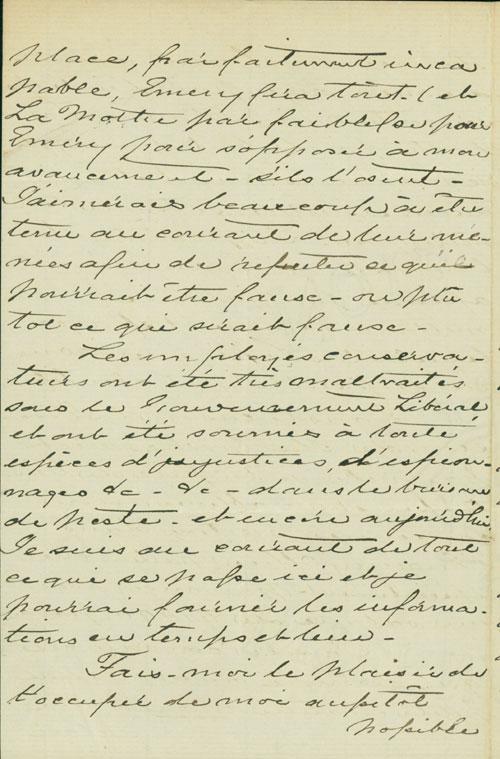 place, parfaitement inca
pable, Emery fera tout (et
La Mothe par faiblesse pour
Emery pour s'opposer à mon
avancement - s'ils l'osent -
J'aimerais beaucoup à être
tenu au courant de leur me-
nées afin de refuter ce qui
pourrait être fausse - ou plu
tot ce que serait fausse -
Les employés conserva-
teurs ont été très maltraités
sous le Gouvernement Libéral
et ont été soumis à toute
espèces d'injustices, d'espion-
nages &c - &c - dans le bureau
de poste - et encore aujourd'hui
Je suis au courant de tout
ce que se passe ici et je
pourrai fournir les informa-
tions en temps et lieu -
Fais-moi le plaisir de
t'occuper de moi aussitôt
possible